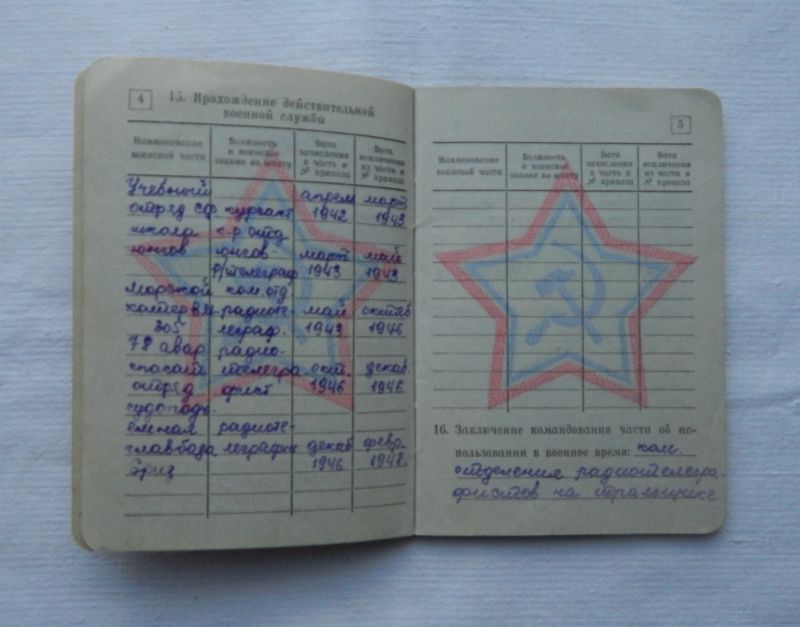 4
15. Прохождение действительной
военной службы
Наименование
воинской части
Должность
и воинское
звание по штату
Дата
зачисления
в часть и
№ приказа
Дата
исключения
из части и
№ приказа
Учебный апрель март
отряд СФ курсант 1942 1943
школа ср. отд
юнгов юнгов- март май
р/телеграф 1943 1943
морской ком. отд
катер радиоте- май октяб
305 леграф. 1943 1946
78 авар радио-
спасат телегра окт. декаб
отряд фист 1946 1946
судоподъ-
емная радиоте-
главбаза леграфис декаб февр.
Бриз 1946 1948.
5
Наименование
воинской части
Должность
и воинское
звание по штату
Дата
зачисления
в часть и
№ приказа
Дата
исключения
из части и
№ приказа
16. Заключение командования части об ис-
пользовании в военное время: ком.
отделения радиотелегра-
фистов на тральщике